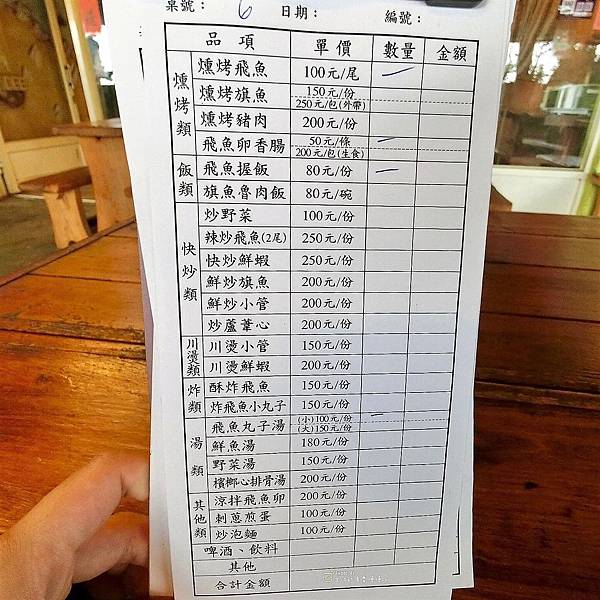 桌號： 6 日期： 編號：
品項 單價 數量 金額
燻烤類
燻烤飛魚 100元/尾
燻烤旗魚 150元/份
250元/包(外帶)
燻烤豬肉 200元/份
飛魚卵香腸 50元/條
200元/包(生食)
飯類
飛魚握飯 80元/份
旗魚魯肉飯 80元/碗
快炒類
炒野菜 100元/份
辣炒飛魚(2尾) 250元/份
快炒鮮蝦 250元/份
鮮炒旗魚 200元/份
鮮炒小管 200元/份
炒蘆葦心 200元/份
川燙類
川燙小管 150元/份
川燙鮮蝦 200元/份
炸類
酥炸飛魚 150元/份
炸飛魚小丸子 150元/份
湯類
飛魚丸子湯 (小)100元/份
(大)150元/份
鮮魚湯 180元/份
野菜湯 150元/份
檳榔心排骨湯 200元/份
其他類
涼拌飛魚卵 200元/份
刺蔥煎蛋 100元/份
炒泡麵 100元/份
啤酒、飲料
其他
合計金額